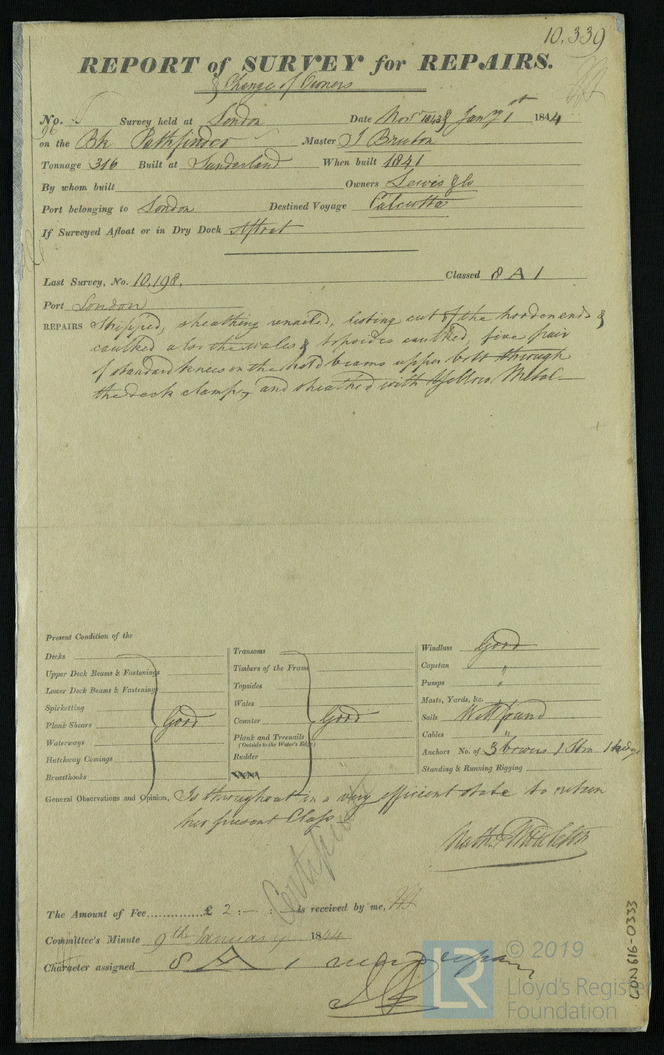 10.339
REPORT of SURVEY for REPAIRS.
& Change of Owners
No. Survey held at London Date Novr 1843 & Jany 1st 1844
96 on the Bk Pathfinder Master J Bruton
Tonnage 316 Built at Sunderland When built 1841
By whom built Owners Lewis & Co
Port belonging to London Destined Voyage Calcutta
If Surveyed Afloat or in Dry Dock Afloat
Last Survey, No. 10,198, Classed 8 A 1
Port London
REPAIRS Stripped, sheathing unnailed, listing cut of the hooden ends &
caulked also the wales & topsides caulked, five pair
of standard knees on the hold beams upper bolt through
the deck clamp, and sheathed with Yellow Metal
Present Condition of the
Decks
Upper Deck Beams & Fastenings
Lower Deck Beams & Fastenings
Spirketting
Plank Shears Good
Waterways
Hatchway Comings
Breasthooks
Transoms
Timbers of the Frame
Topsides
Wales
Counter Good
Plank and Treenails
(Outside to the Water's Edge)
Rudder
Windlass Good
Capstan "
Pumps "
Masts, Yards, &c.
Sails Well found
Cables "
Anchors No. of 3 bowers 1 Stm 1 kedge
Standing & Running Rigging
General Observations and Opinion, Is throughout in a very efficient state to retain
her present Class
Nathl Middleton
Certified
The Amount of Fee £ 2 : - : - is received by me,
Committee's Minute 9th January 1844
Character assigned 8 A 1
LR © 2019
Lloyd's Register
Foundation
CON616-0333